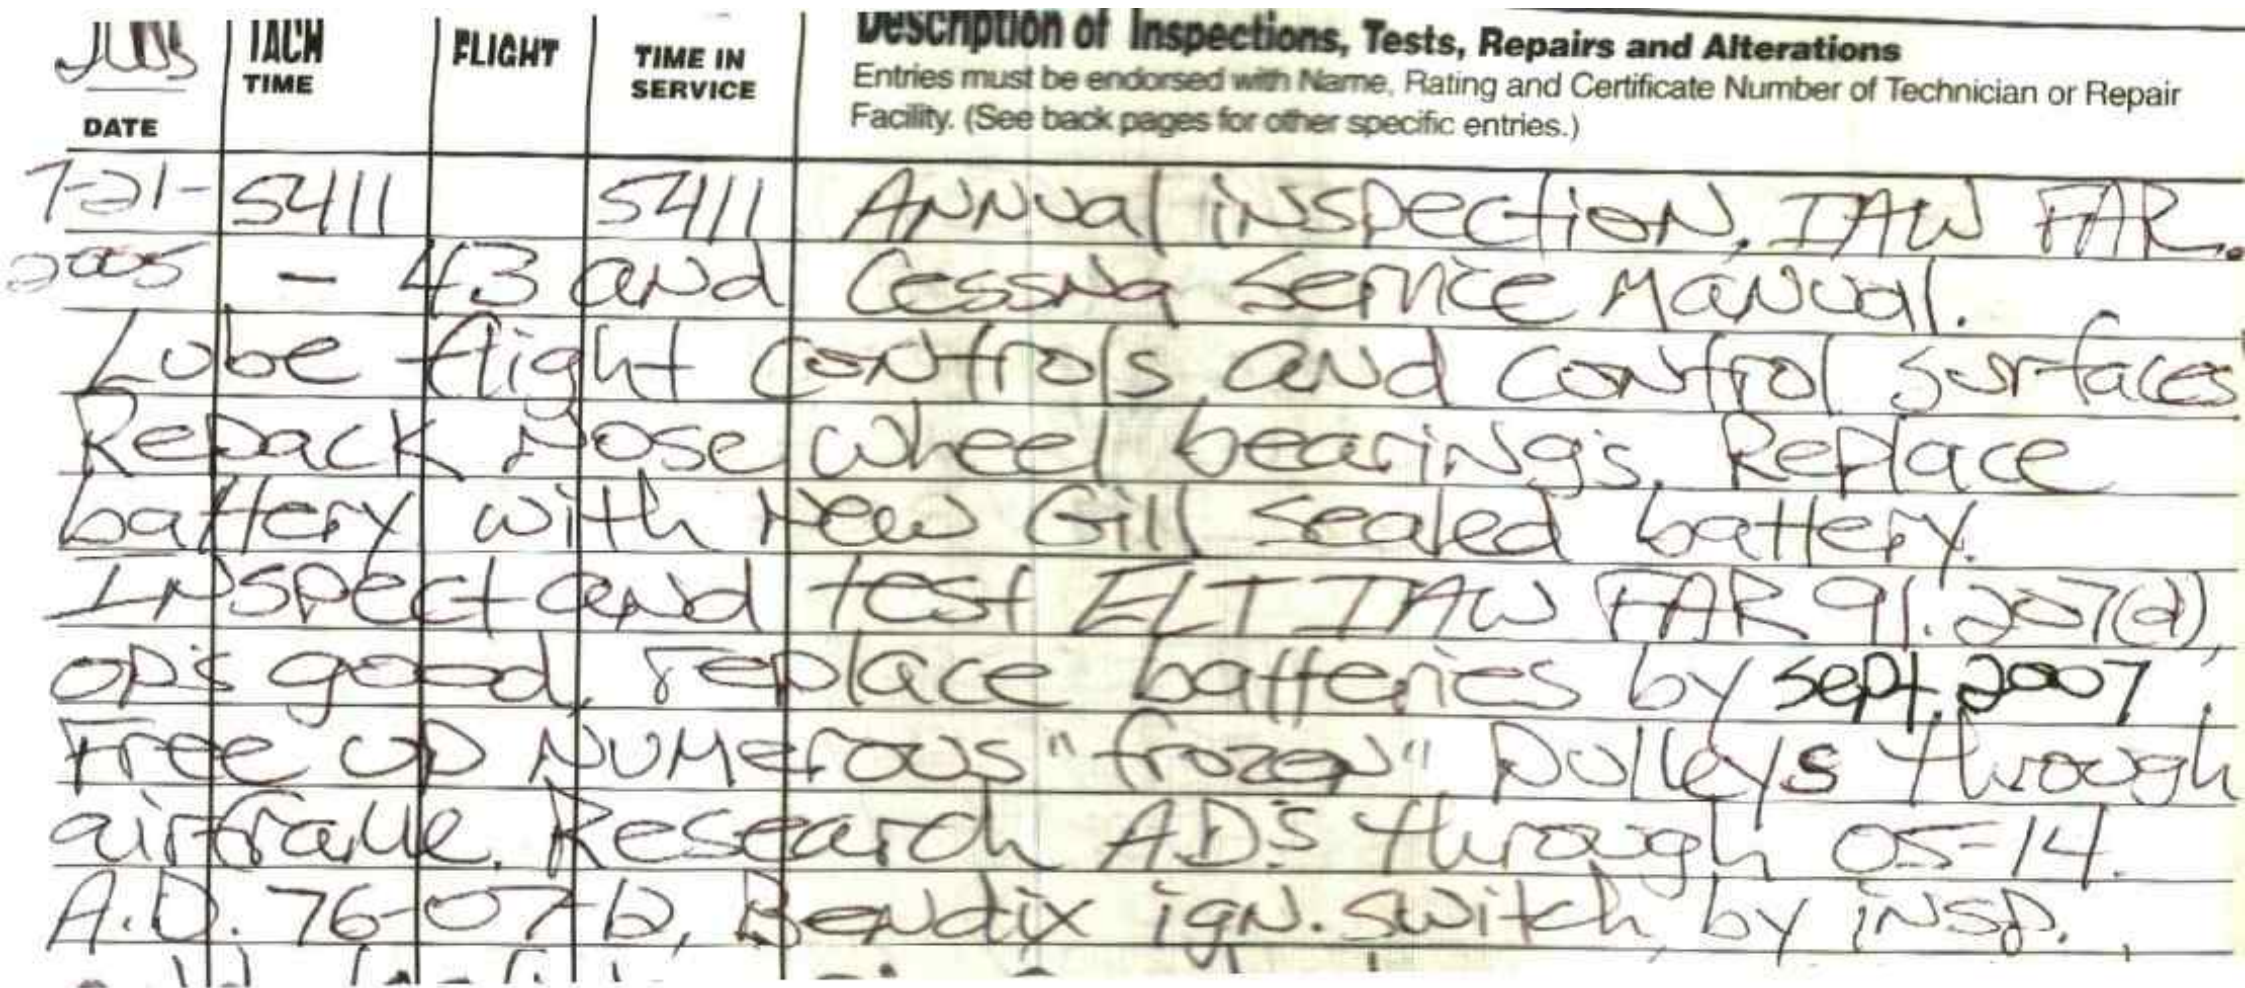 TACH FLIGHT TIME IN Description of Inspections, Tests, Repairs and Alterations
TIME SERVICE Entries must be endorsed with Name, Rating and Certificate Number of Technician or Repair
DATE Facility. (See back pages for other specific entries.)
7-21- 5411 5411 Annual inspection, IAW FAR.
2005 - 43 and Cessna Service Manual.
Lube flight controls and control surfaces
Repack Nose wheel bearings. Replace
battery with New Gill sealed battery.
Inspect and test ELT IAW FAR 91.207(d),
ops good, replace batteries by Sept. 2007.
Free up numerous "frozen" pulleys through
airframe. Research AD'S through 05-14.
A.D. 76-07-12, Bendix ign. switch, by insp.